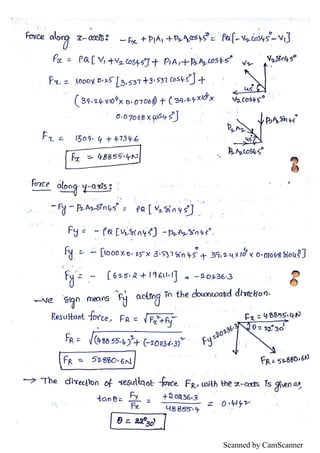 Force along x-axis: -Fx + P1A1 + P2A2cos45° = ρQ[-V2cos45°-V1]
Fx = ρQ[V1+V2cos45°] + P1A1+P2A2cos45°
V2
V2sin45°
Fx = 1000×0.25[3.537+3.537cos45°] +
45°
V2cos45°
(39.24×10⁴×0.07068) + (39.24×10⁴×
0.07068×cos45°]
P2A2
P2A2sin45°
45°
P2A2cos45°
Fx = 1509.4 + 47346
Fx = 48855.4N
Force along y-axis:
-Fy - P2A2sin45° = ρQ[V2sin45°]
Fy = -ρQ[V2sin45°] - P2A2sin45°.
Fy = -[1000×0.25×3.537sin45° + 39.24×10⁴×0.07068sin45°]
Fy = -[625.2+19611.1] = -20236.3
-ve sign means Fy acting in the downward direction.
Resultant force, FR = √Fx²+Fy²
Fx = 48855.4N
θ = 22°30'
Fy=20236.3
FR = √(48855.4)²+(-20236.3)²
FR = 52880.6N
FR = 52880.6N
→ The direction of resultant force FR, with the x-axis is given as,
tanθ = Fy/Fx = +20236.3/48855.4 = 0.4142
θ = 22°30'
Scanned by CamScanner